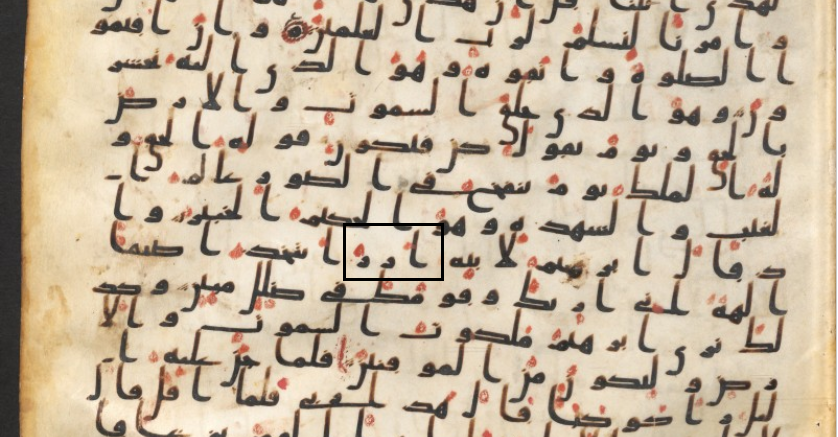 وامرنا لنسلم لرب العلمين وان اقيمو
ا الصلوة واتقوه وهو الذي اليه تحشر
ون وهو الذي خلق السموت والارض
بالحق ويوم يقول كن فيكون قوله الحق و
له الملك يوم ينفخ في الصور علم ا
لغيب والشهدة وهو الحكيم الخبير وا
ذ قال ابرهيم لابيه ازر اتتخذ اصنما
الهة اني اريك وقومك في ضلل مبين وكذ
لك نري ابرهيم ملكوت السموت والا
رض وليكون من الموقنين فلما جن عليه ا
ليل را كوكبا قال هذا ربي فلما افل قال